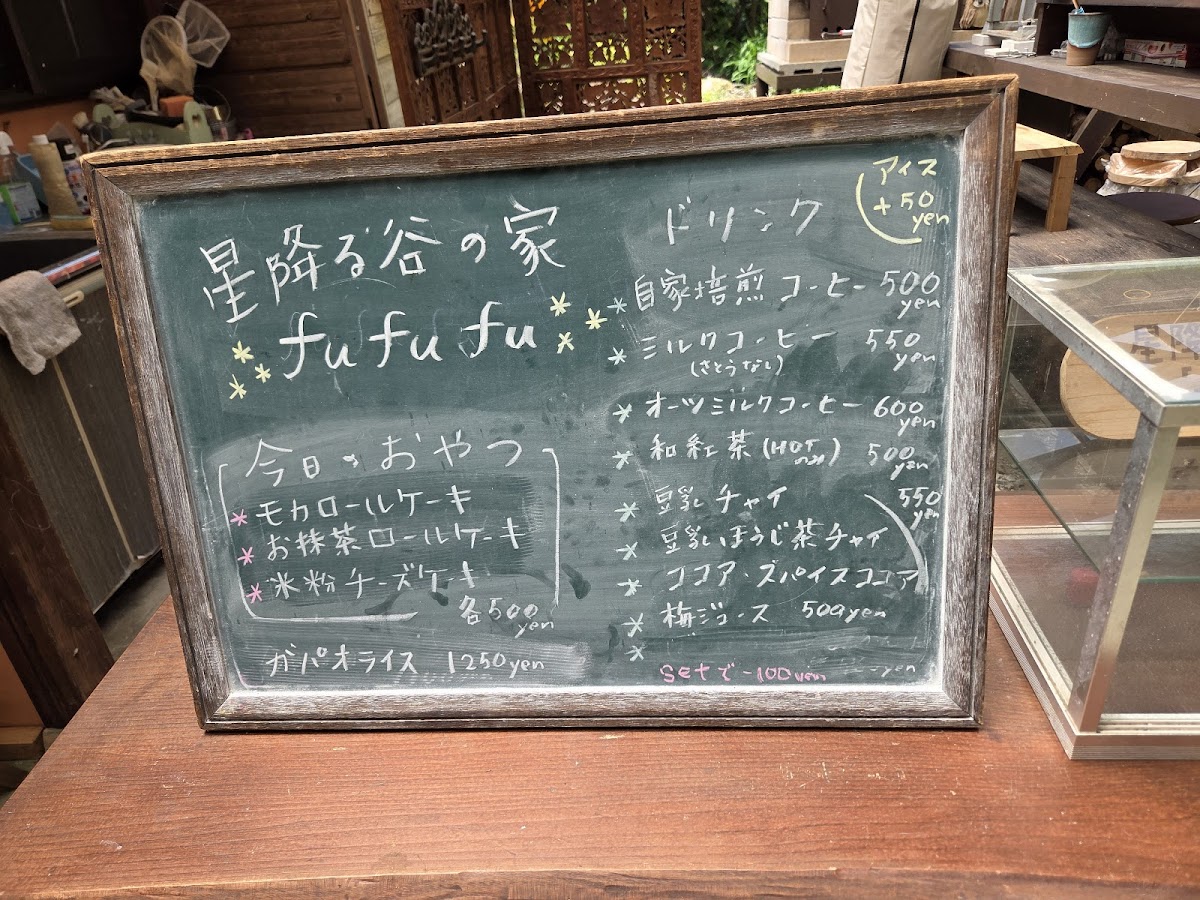 星降る谷の家
fu fu fu
今日のおやつ
モカロールケーキ
お抹茶ロールケーキ
米粉チーズケーキ
各500yen
ガパオライス 1250yen
アイス
+50
yen
ドリンク
自家焙煎コーヒー 500yen
ミルクコーヒー 550yen
(さとうなし)
オーツミルクコーヒー 600yen
和紅茶(HOTのみ) 500yen
豆乳チャイ 550yen
豆乳ほうじ茶チャイ
ココア・スパイスココア
梅ジュース 500yen
setで-100yen